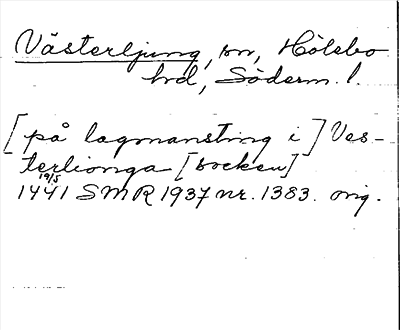 Västerljung, sn, Hölebo
hd, Söderm. l.
[på lagmansting i] Ves-
terlionga [socken]
19/5
1441 SMR 1937 nr. 1383. orig.